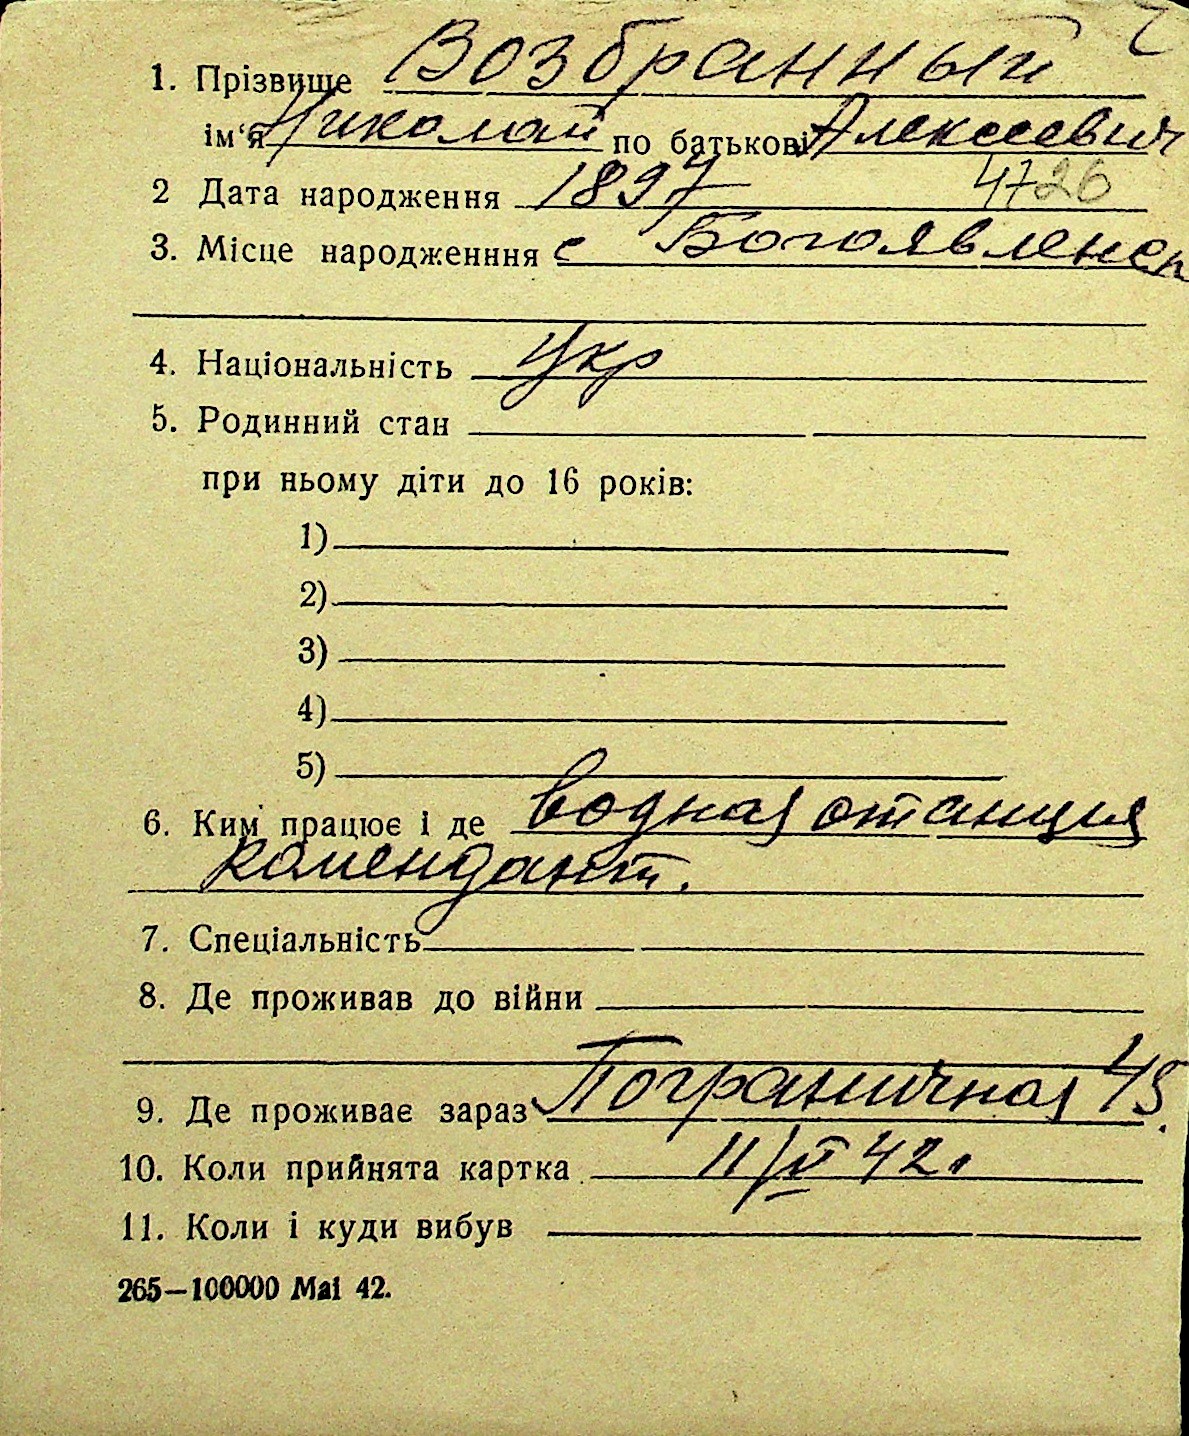 1. Прізвище Возбранный
ім'я Николай по батькові Алексеевич
2 Дата народження 1897 4726
3. Місце народженння с Богоявленск
4. Національність Укр
5. Родинний стан
при ньому діти до 16 років:
1)
2)
3)
4)
5)
6. Ким працює і де водная станция
комендант.
7. Спеціальність
8. Де проживав до війни
9. Де проживає зараз Пограничная 45.
10. Коли прийнята картка 11/V 42.
11. Коли і куди вибув
265—100000 Mai 42.